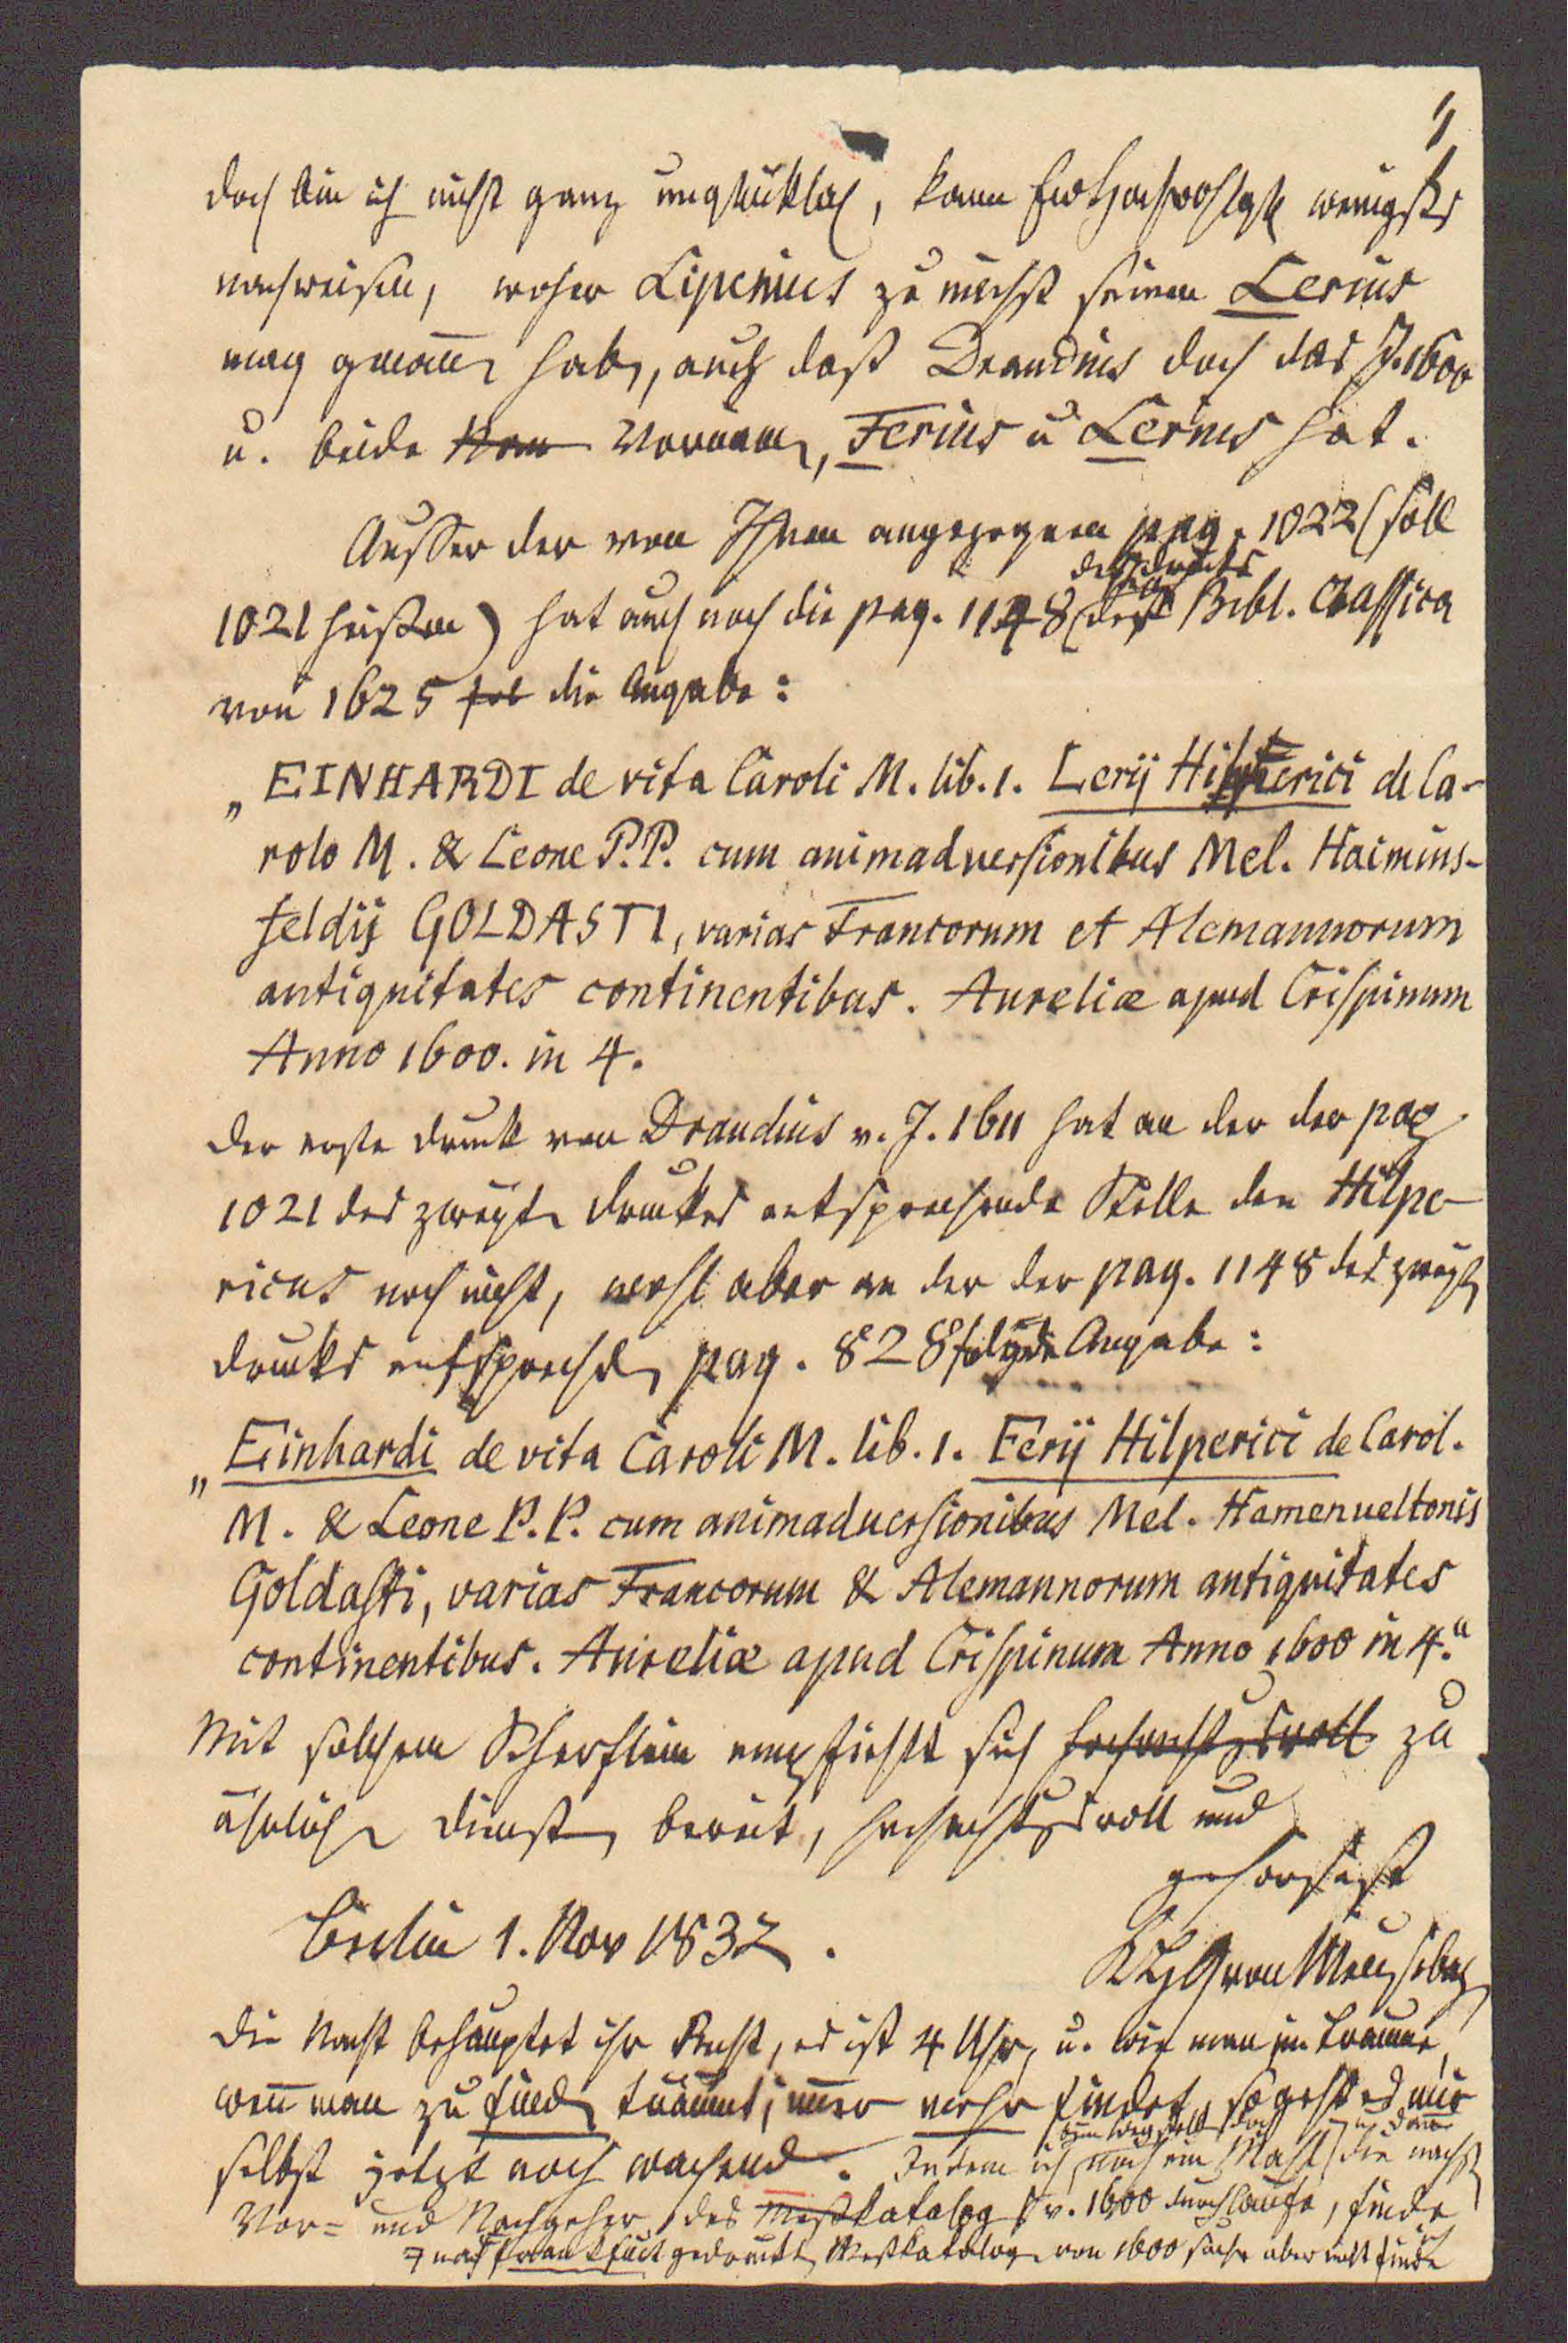 doch bin ich nicht ganz unglücklich, kann Ew Hochwohlgb wenigsts
nachweisen, woher Lipenius zu nächst seinen Lerius
mag genom̄en haben, auch daß Draudius doch das J. 1600
u. beide Vornamen, Ferius u Lerius hat.
Ausser der von Ihnen angezogenen pag. 1022 (soll
1021 heißen) hat auch noch die pag. 1148 (des Drucks der Bibl. Classica
von 1625 die Angabe:
„EINHARDI de vita Caroli M. lib. 1. Lerij Hilperici de Ca-
rolo M. & Leone P.P. cum animadversionibus Mel. Haimins-
feldij GOLDASTI, varias Francorum et Alemannorum
antiquitates continentibus. Aureliæ apud Crispinum
Anno 1600. in 4.
Der erste Druck von Draudius v. J. 1611 hat an der der pag
1021 des zweyten Druckes entsprechende Stelle den Hilpe-
ricus noch nicht, wohl aber an der der pag. 1148 des zweyten
Drucks entsprechenden pag. 828 folgende Angabe:
„Einhardi de vita Caroli M. lib. 1. Ferij Hilperici de Carol.
M. & Leone P.P. cum animaduersionibus Mel. Hamenueltonis
Goldasti, varias Francorum & Alemannorum antiquitates
continentibus. Aureliæ apud Crispinum Anno 1600 in 4.“
Mit solchem Scherflein empfiehlt sich hochachtungsvoll zu
ähnlichen Diensten bereit, hochachtungsvoll und
gehorsamst
Berlin 1. Nov 1832.
KHGvon Meusebach
Die Nacht behauptet ihr Recht, es ist 4 Uhr, u. wie man im Traume,
wen̄ man zu finden träumt, im̄er mehr findet, so geht es mir
selbst jetzt noch wachend. Indem ich beim Wegstellen doch noch ein Mahl die nächsten
Vor- und Nachgeher des Meßkatalog v. 1600 durchlaufe, finde
nach Frankfurt gedruckten Meßkataloge von 1600 suche aber nicht finde